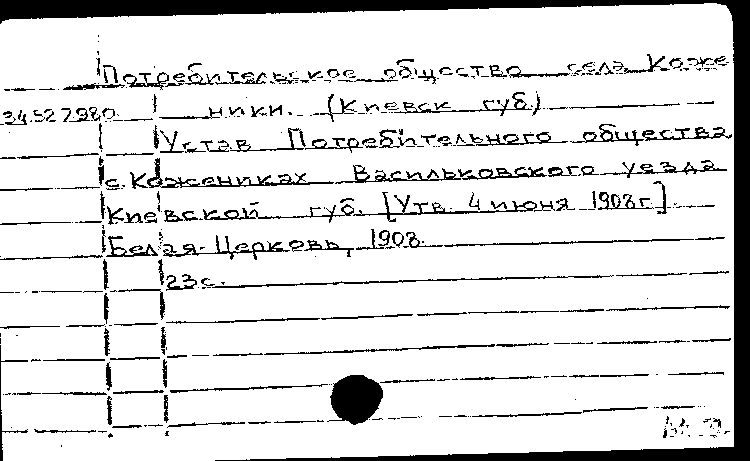 Потребительское общество села Коже
34.52 7980 ники. (Киевск губ.)
Устав Потребительного общества
с. Кожениках Васильковского уезда
Киевской губ. [Утв. 4 июня 1908 г.].
Белая-Церковь, 1908.
23 с.